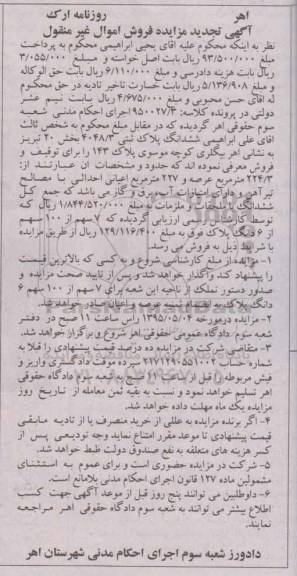 اهر روزنامه ارک
آگهی تجدید مزایده فروش اموال غیر منقول
نظر به اینکه محکوم علیه اقای یحیی ابراهیمی محکوم به پرداخت
مبلغ ۹۳/۵۰۰/۰۰۰ ریال بابت اصل خواسته و مبلغ ۳/۰۵۵/۰۰۰
ریال بابت هزینه دادرسی و مبلغ ۶/۱۱۰/۰۰۰ ریال بابت حق الوکاله
و مبلغ ۵/۱۳۶/۹۰۸ ریال بابت خسارت تاخیر تادیه در حق محکوم
له اقای حسن محبوبی و مبلغ ۴/۶۷۵/۰۰۰ ریال بابت نیم عشر
دولتی در پرونده کلاسه: ۹۵۰۰۲۷/۳ اجرای احکام مدنی شعبه
سوم حقوقی اهر گردیده که در مقابل مبلغ محکوم به شخص ثالث
اقای علی ابراهیمی ششدانگ پلاک ثبتی ۴۰۴۸/۳ بخش ۲۰ تبریز
به نشانی اهر بیگلری کوچه موسوی پلاک ۱۴۳ را برای توقیف و
فروش معرفی نموده اند که حدود و مشخصات آن عبارتند از:
۲۲۴/۳ مترمربع عرصه و ۲۲۷ مترمربع اعیانی احداثی با مصالح
تیرآهن و دارای امتیازات آب، برق و گاز می باشد که جمع کل
ششدانگ با ملحقات و ملزمات به مبلغ ۱/۸۴۴/۵۲۰/۰۰۰ ریال
توسط کارشناس رسمی ارزیابی گردیده که ۷ سهم از ۱۰۰ سهم
از ۶ دانگ پلاک فوق به مبلغ ۱۲۹/۱۱۶/۴۰۰ ریال از طریق مزایده
با شرایط ذیل به فروش می رسد.
۱- مزایده از مبلغ کارشناسی شروع و به کسی که بالاترین قیمت
را پیشنهاد کند واگذار خواهد شد و پس از تایید صحت مزایده و
صدور دستور تملک از ناحیه این شعبه برای ۷ سهم از ۱۰۰ سهم ۶
دانگ پلاک به انضمام ثمنیه عرصه و اعیان صادر خواهد شد.
۲- مزایده درمورخه ۱۳۹۵/۰۵/۰۴ راس ساعت ۱۱ صبح در دفتر
شعبه سوم دادگاه عمومی حقوقی اهر شروع و برگزار خواهد شد.
۳- متقاضی شرکت در مزایده ده درصد قیمت پیشنهادی را قبلا به
شماره حساب ۲۱۷۱۲۹۰۵۵۱۰۰۲ سپرده موقت دادگستری واریز و
فیش مربوطه را قبل از ساعت ۱۱ صبح به شعبه سوم دادگاه حقوقی
اهر تسلیم خواهد نمود و نسبت به بقیه ثمن معامله از تاریخ روز
مزایده یک ماه مهلت داده خواهد شد.
۴- اگر برنده مزایده به عللی از خرید منصرف یا از تادیه مابقی
قیمت پیشنهادی تا موعد مقرر امتناع نماید وجه تودیعی پس از
کسر هزینه های متعلقه به نفع صندوق دولت طبط خواهد شد.
۵- شرکت در مزایده حضوری است و برای عموم به استثنای
مشمولین ماده ۱۲۷ قانون اجرای احکام مدنی بلامانع است.
۶- داوطلبین می توانند پنج روز قبل از موعد آگهی جهت کسب
اطلاع بیشتر می توانند به شعبه سوم دادگاه حقوقی اهر مراجعه
نمایند.
دادورز شعبه سوم اجرای احکام مدنی شهرستان اهر